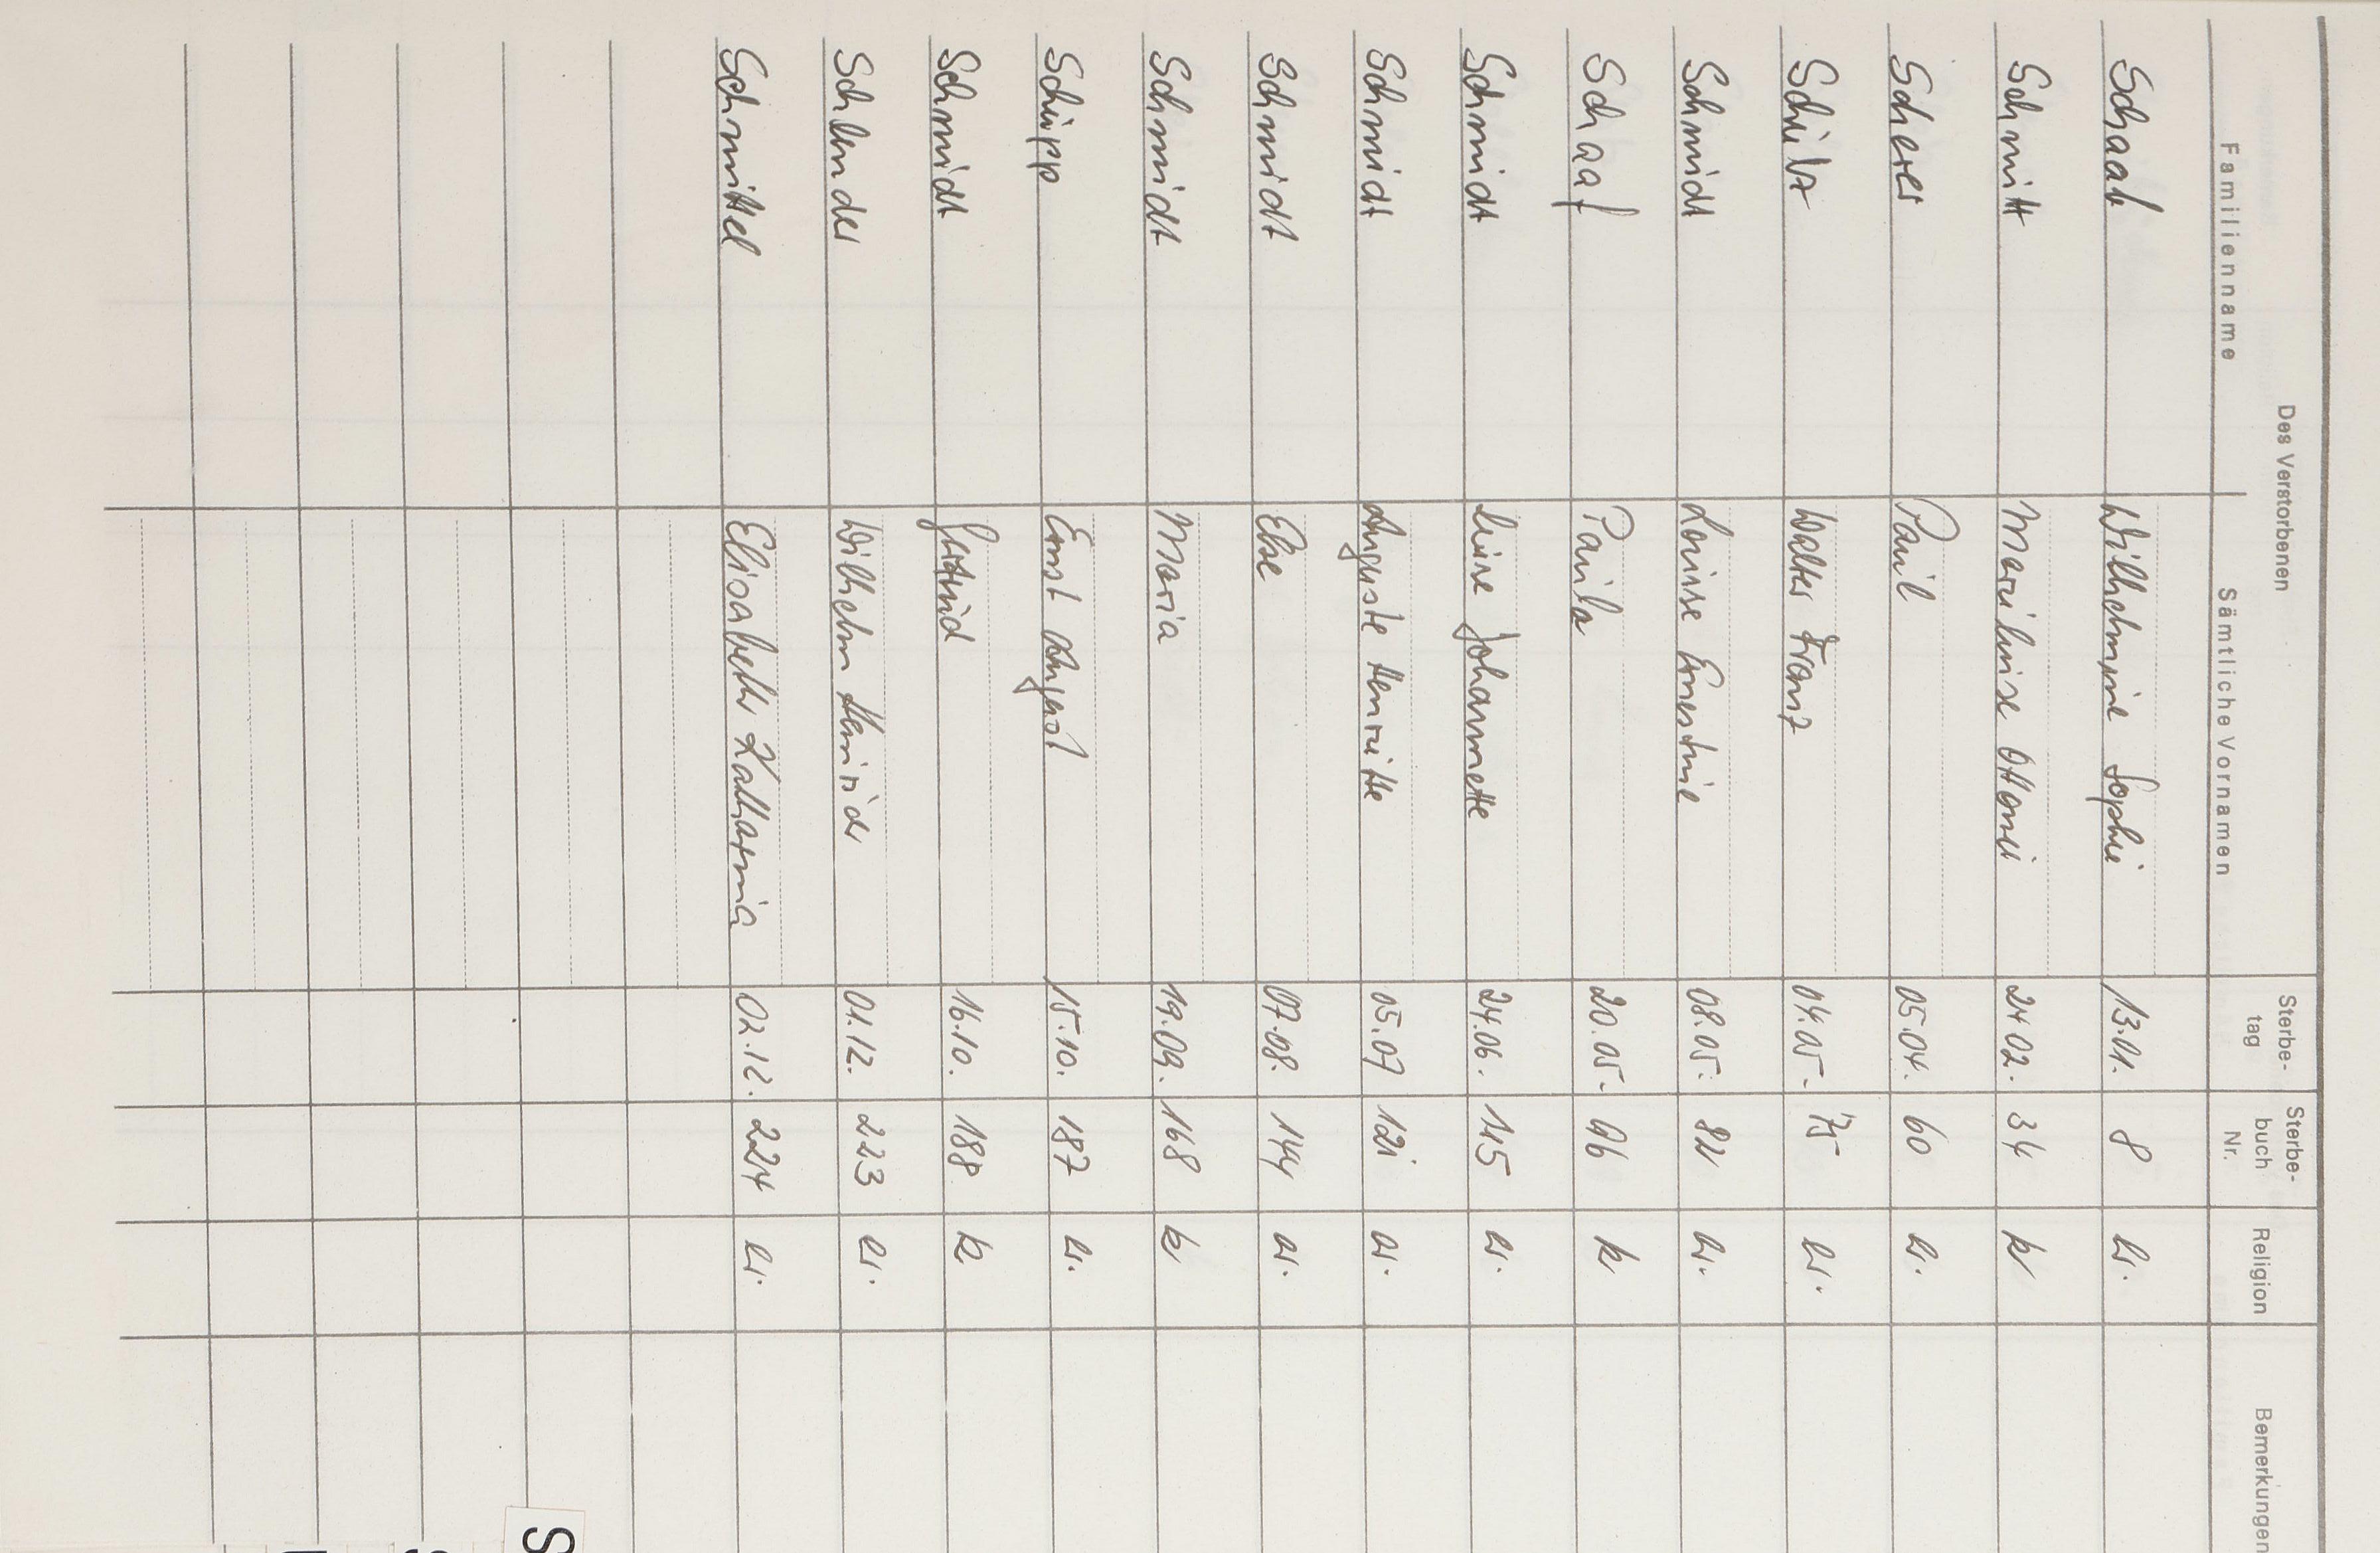 Des Verstorbenen
Familienname Sämtliche Vornamen Sterbe-tag Sterbe-buch Nr. Religion Bemerkungen
Schaab Wilhelmine Sophie 13.01. 8 ev.
Schmitt Marieluise Ottonie 24.02. 34 k
Scherer Paul 05.04. 60 ev.
Walter Franz 04.05. 75 ev.
Schmidt Louise Ernestine 08.05. 82 ev.
Schaaf Paula 20.05. 96 k
Schmidt Luise Johannette 24.06. 115 ev.
Schmidt Auguste Henriette 05.07 121 ev.
Schmidt Else 07.08. 144 ev.
Schmidt Maria 19.09. 168 k
Schupp Ernst August 15.10. 187 ev.
Schmidt Gertrud 16.10. 188 k
Schlender Wilhelm Heinrich 01.12. 223 ev.
Schmittel Elisabeth Katharina 02.12. 224 ev.
S